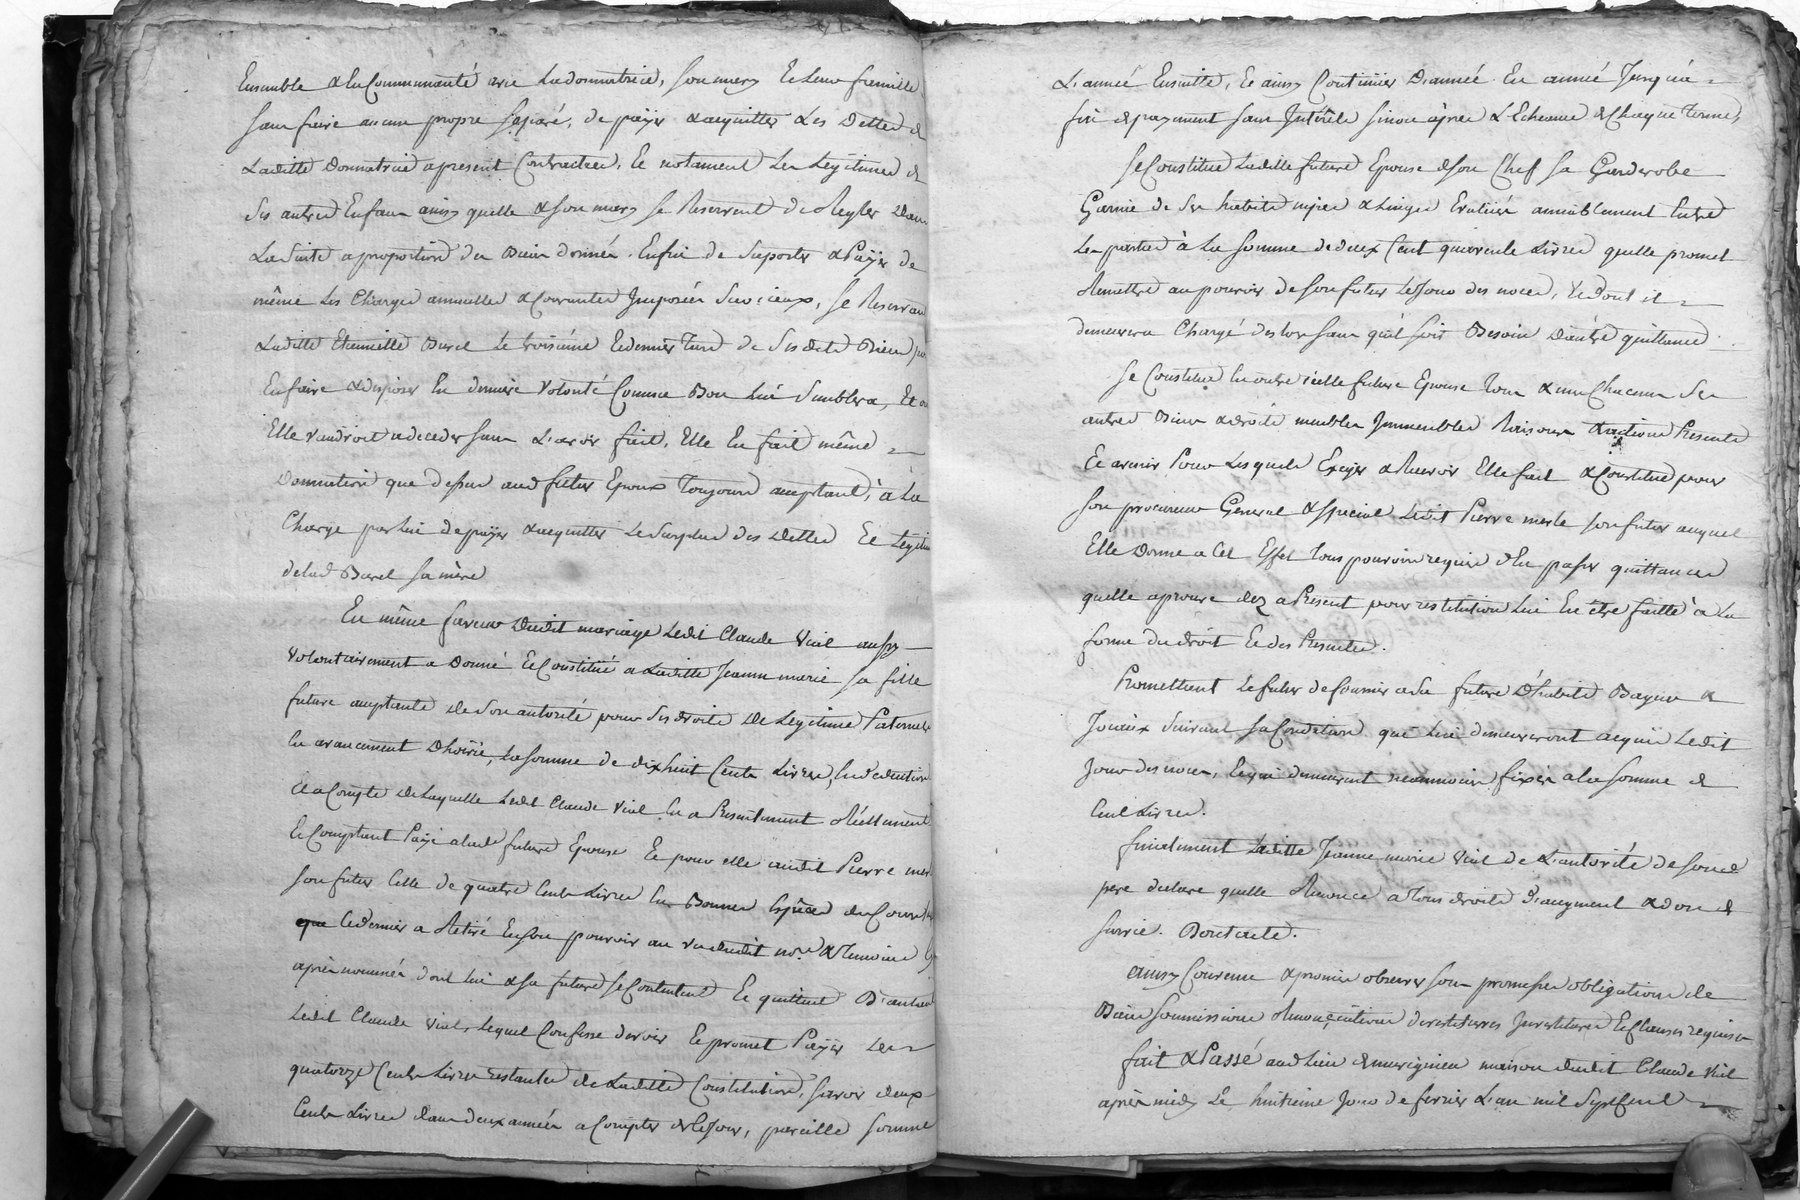 Ensemble & En Communauté avec Ladonnatrice, son mary Et Leur famille
sans faire aucun propre separé, de payer & acquitter Les Dettes de
Laditte Donnatrice apresent Contractées, Et notament Les Legitimes de
Ses autres Enfans ainsy quelle & son mary se Reservent de Regler Dans
La Suite a proportion des Biens donnés. Enfin de Suporter & Payer de
même Les Charges annuelles & Courantes Imposées Sur iceux, se Reservant
Laditte Etiennette Burel Le troisième Et dernier Tiers de Ses dits Biens pr
En faire & disposer En derniere Volonté Comme Bon Lui Semblera, Et ou
Elle Viendroit a deceder sans L'avoir fait, Elle En fait même
Donnation que dessus aud futur Epoux Toujours acceptant, à La
Charge par Lui de payer & acquitter Le Surplus des Dettes Et Legitimes
de lad Burel sa mère
En même faveur Dudit mariage Ledit Claude Vial aussy
Volontairement a Donné Et Constitué a Laditte Jeanne marie sa fille
future acceptante de Son autorité pour Ses droits De Legitime Paternels
En avancement D'hoirie, La somme de dix huit Cents Livres, En deduction
Et a Compte de Laquelle Ledit Claude Vial En a Presentement Réellement
Et Comptant Payé a lad future Epouse Et pour elle audit Pierre merle
son futur Celle de quatre Cents Livres En Bonnes Espèces du Cours
que Ce dernier a Retiré En son pouvoir au vu dudit nore & Temoins Cy
après nommés dont Lui & sa future se Contentent Et quittent D'autant
Ledit Claude Vial, Lequel Confesse devoir Et promet Payer Les
quatorze Cents Livres restantes de Laditte Constitution, savoir deux
Cents Livres dans deux années a Compter de Ce Jour, pareille somme
L'année Ensuitte, Et ainsy Continüer D'année En année Jusqu'a
fin de payment sans Intérêts sinon après L'Echeance de Chaque Terme,
Se Constitue Laditte future Epouse de son Chef sa Garderobe
Garnie de Ses habits nipes & Linges Evalués amiablement Entre
Les parties à La somme de deux Cent quarente Livres quelle promet
Remettre au pouvoir de son futur Le Jour des noces, Et dont il
demeurera Chargé des lors sans qu'il soit Besoin D'autre quittance
Se Constitue En outre icelle future Epouse Tous & un Chacuns Ses
autres Biens & droits meubles Immeubles Raisons & actions Presents
Et avenir Pour Lesquels Exiger & Recevoir Elle fait & Constitue pour
Son procureur General & special Ledit Pierre merle son futur auquel
Elle Donne a Cet Effet Tous pouvoirs requis d'En passer quittances
quelle aprouve dez a Present, pour restitution Lui En être faitte à La
forme du droit Et des Presentes.
Promettant Le futur de fournir a Sa future D'habits Bagues &
Joüaux Suivant sa Condition qui Lui demeureront acquis Ledit
Jour des noces, Et qui demeurent neanmoins fixés a la somme de
Cent Livres.
finalement Laditte Jeanne marie Vial de L'autorité de sond
pere declare quelle Renonce a Tous droits D'augment & don de
survie. Dont acte.
ainsy Convenu & promis observer sous promesses obligations de
Biens Soumissions Renonciations devestitures Investitures Et Clauses requises
fait & Passé aud Lieu de marignieu maison dudit Claude Vial
après midy Le huitieme Jour de fevrier L'an mil Sept Cent